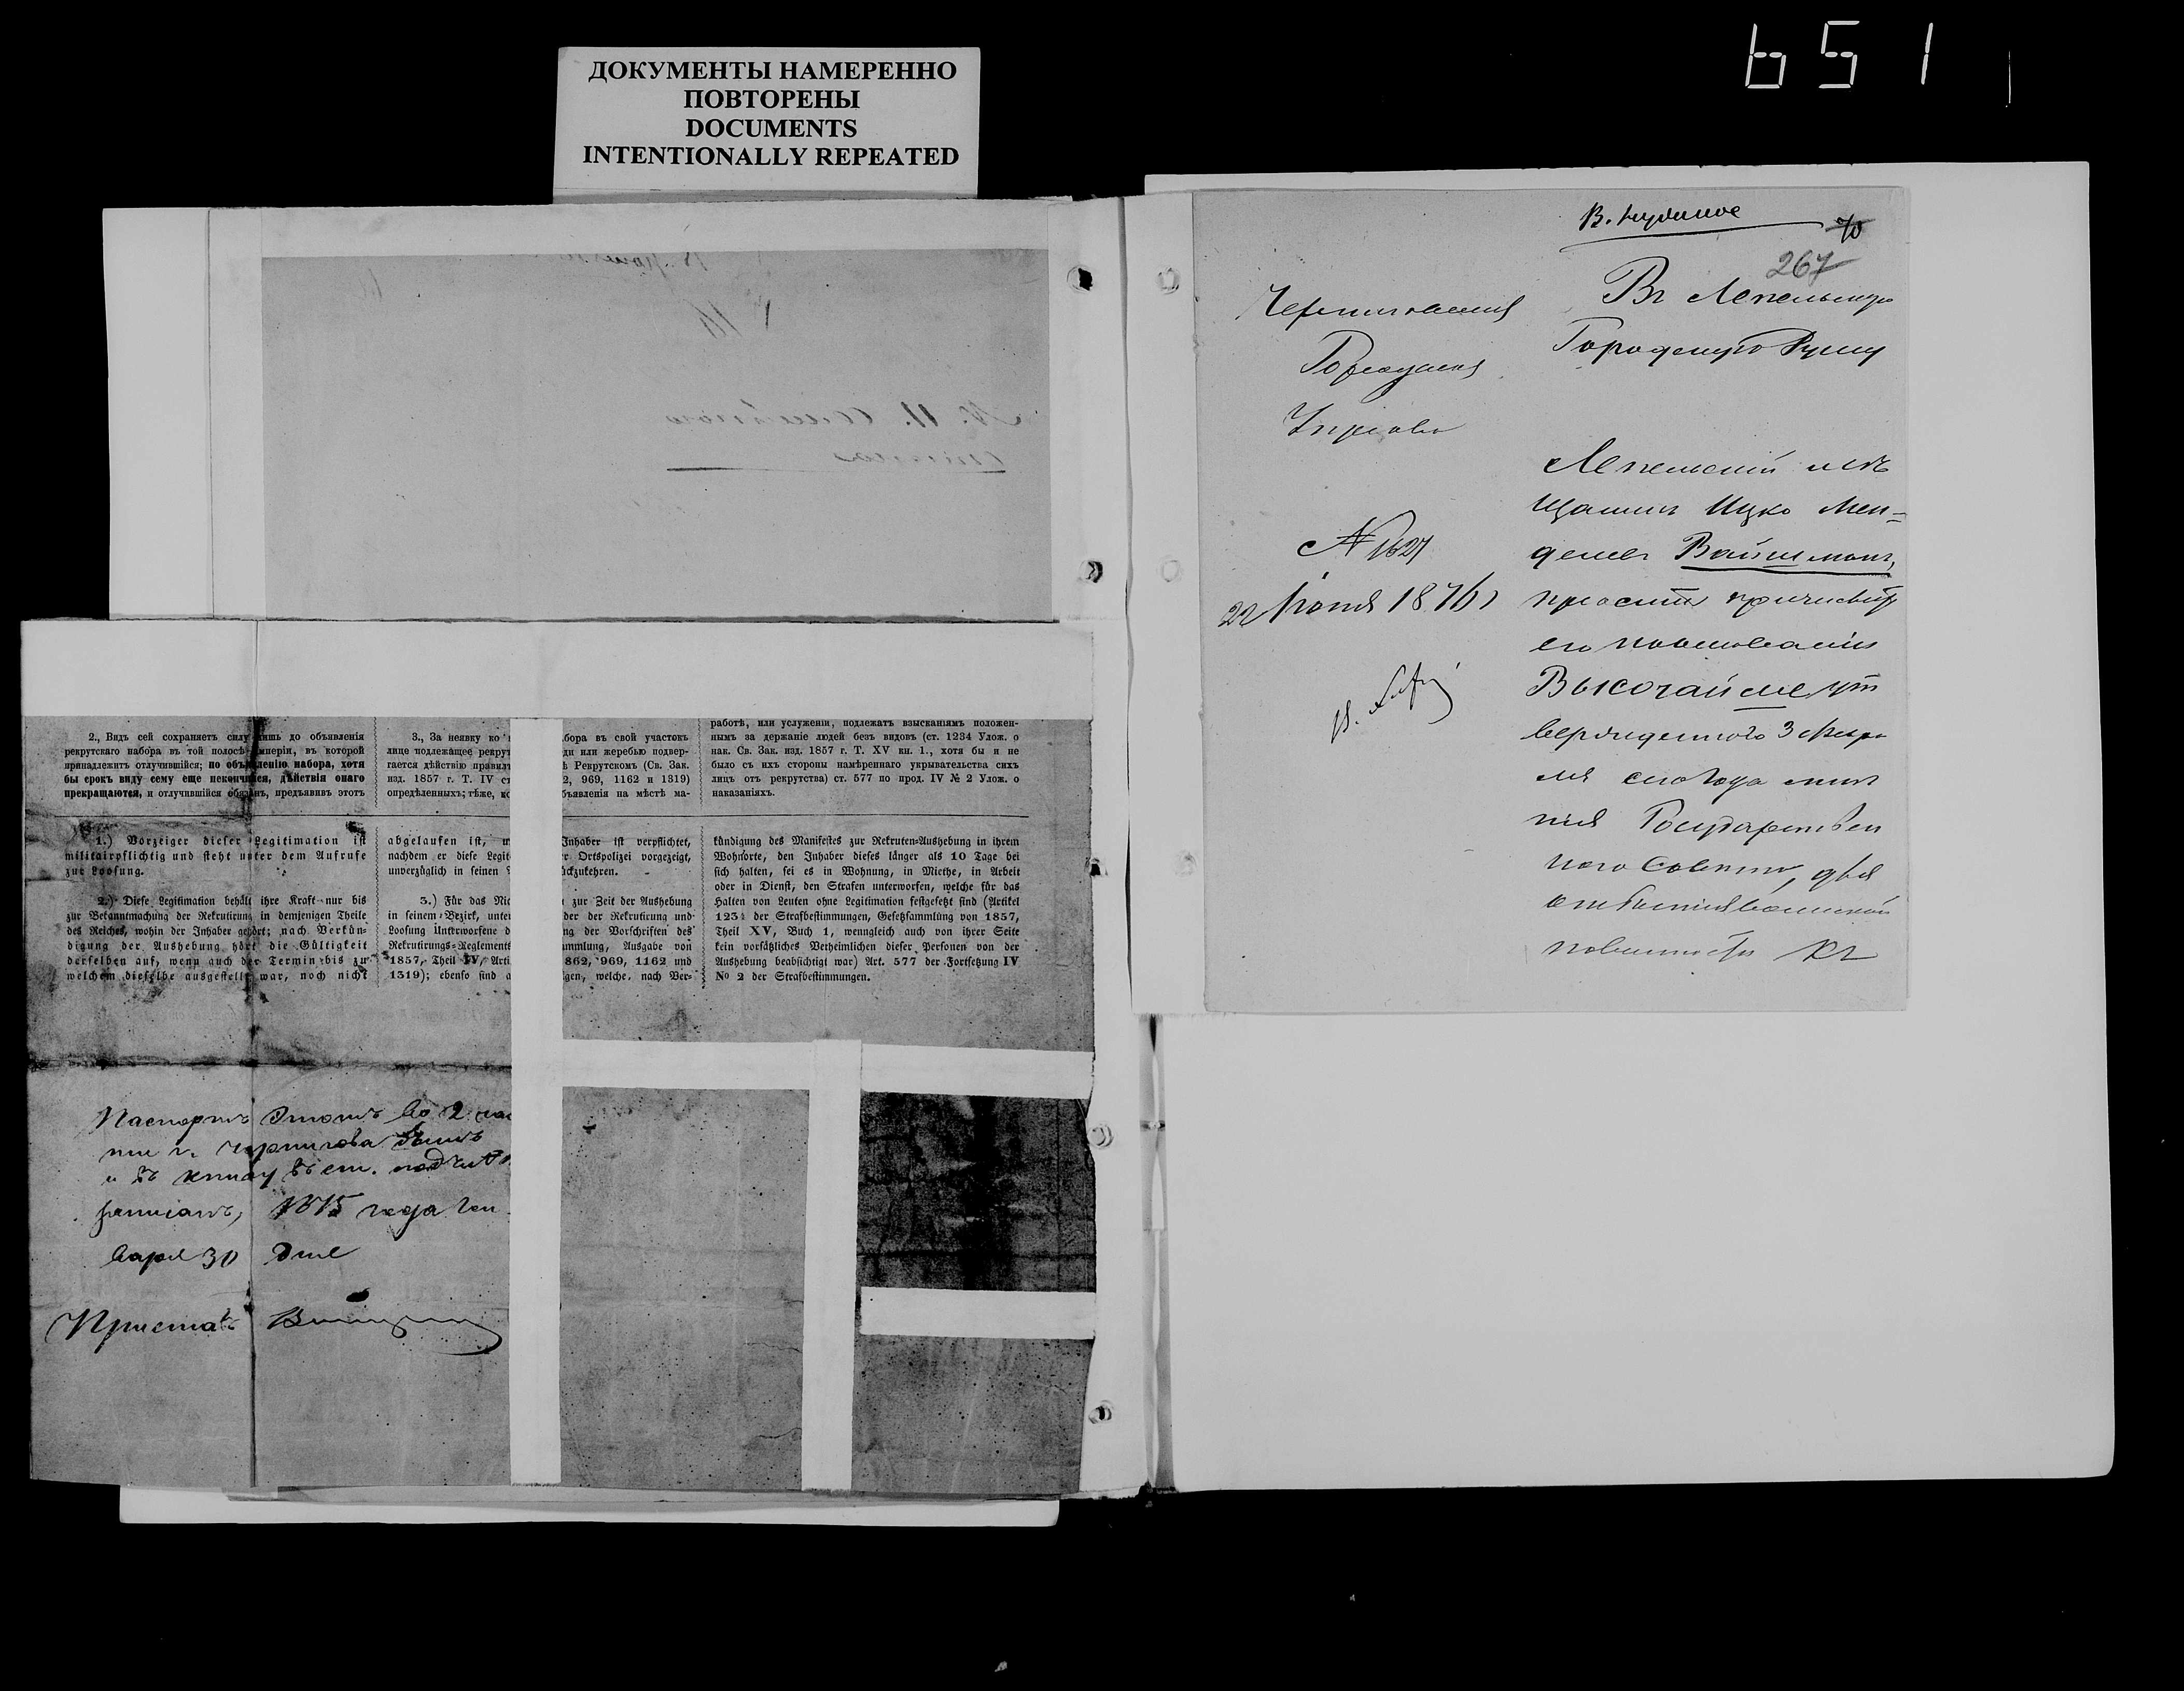 651
ДОКУМЕНТЫ НАМЕРЕННО
ПОВТОРЕНЫ
DOCUMENTS
INTENTIONALLY REPEATED
работѣ, или услуженіи, подлежатъ взысканіямъ положен-
2., Видъ сей сохраняетъ силу лишь до объявленія
рекрутскаго набора въ той полосѣ Имперіи, въ которой
принадлежитъ отлучившійся; по объявленію набора, хотя
бы срокъ виду сему еще некончился, дѣйствія онаго
прекращаются, и отлучившійся обязанъ, предъявивъ этотъ
3., За неявку ко
лице подлежащее рекрут
гается дѣйствію правил
изд. 1857 г. Т. IV ст
опредѣленныхъ; тѣже, ко
бора въ свой участокъ
ди или жеребью подвер-
ѣ Рекрутскомъ (Св. Зак.
2, 969, 1162 и 1319)
бъявленія на мѣстѣ ма-
нымъ за держаніе людей безъ видовъ (ст. 1234 Улож. о
нак. Св. Зак. изд. 1857 г. Т. XV кн. 1., хотя бы и не
было съ ихъ стороны намѣреннаго укрывательства сихъ
лицъ отъ рекрутства) ст. 577 по прод. IV № 2 Улож. о
наказаніяхъ.
1.) Vorzeiger dieser Legitimation ist
militairpflichtig und steht unter dem Aufrufe
zur Loosung.
2.) Diese Legitimation behält ihre Kraft nur bis
zur Bekanntmachung der Rekrutirung in demjenigen Theile
des Reiches, wohin der Inhaber gehört; nach Verkün-
digung der Aushebung hört die Gültigkeit
derselben auf, wenn auch der Termin bis zu
welchem dieselbe ausgestellt war, noch nicht
abgelaufen ist, u
nachdem er diese Legit
unverzüglich in seinen
3.) Für das Nic
in seinem Bezirk, unter
Loosung Unterworfene d
Rekrutirungs-Reglements
1857, Theil IV, Arti
1319); ebenso sind a
Inhaber ist verpflichtet,
r Ortspolizei vorgezeigt,
ückzukehren.
zur Zeit der Aushebung
der der Rekrutirung und
ng der Vorschriften des
mmlung, Ausgabe von
862, 969, 1162 und
gen, welche, nach Ver-
kündigung des Manifestes zur Rekruten-Aushebung in ihrem
Wohnorte, den Inhaber dieses länger als 10 Tage bei
sich halten, sei es in Wohnung, in Miethe, in Arbeit
oder in Dienst, den Strafen unterworfen, welche für das
Halten von Leuten ohne Legitimation festgesetzt sind (Artikel
123 der Strafbestimmungen, Gesetzsammlung von 1857,
Theil XV, Buch 1, wenngleich auch von ihrer Seite
kein vorsätzliches Verheimlichen dieser Personen von der
Aushebung beabsichtigt war) Art. 577 der Fortsetzung IV
No 2 der Strafbestimmungen.
Паспортъ Этотъ во 2 час
ти г. Чернигова
и въ книгу
записанъ, 1875 года Ген
варя 30 дня
Приставъ
70
267
Черниговская
Городская
Управа
№ 1627
22 Іюня 1876 г
Въ Лепельскую
Городскую Думу
Лепельскій мѣ
щанинъ Ицко Мен-
делевъ Вайнманъ,
проситъ причислить
его на основаніи
Высочайше ут
вержденнаго 3 Февра
ля сего года мнѣ
нія Государствен
наго Совѣта, для
отбытія воинской
повинности къ